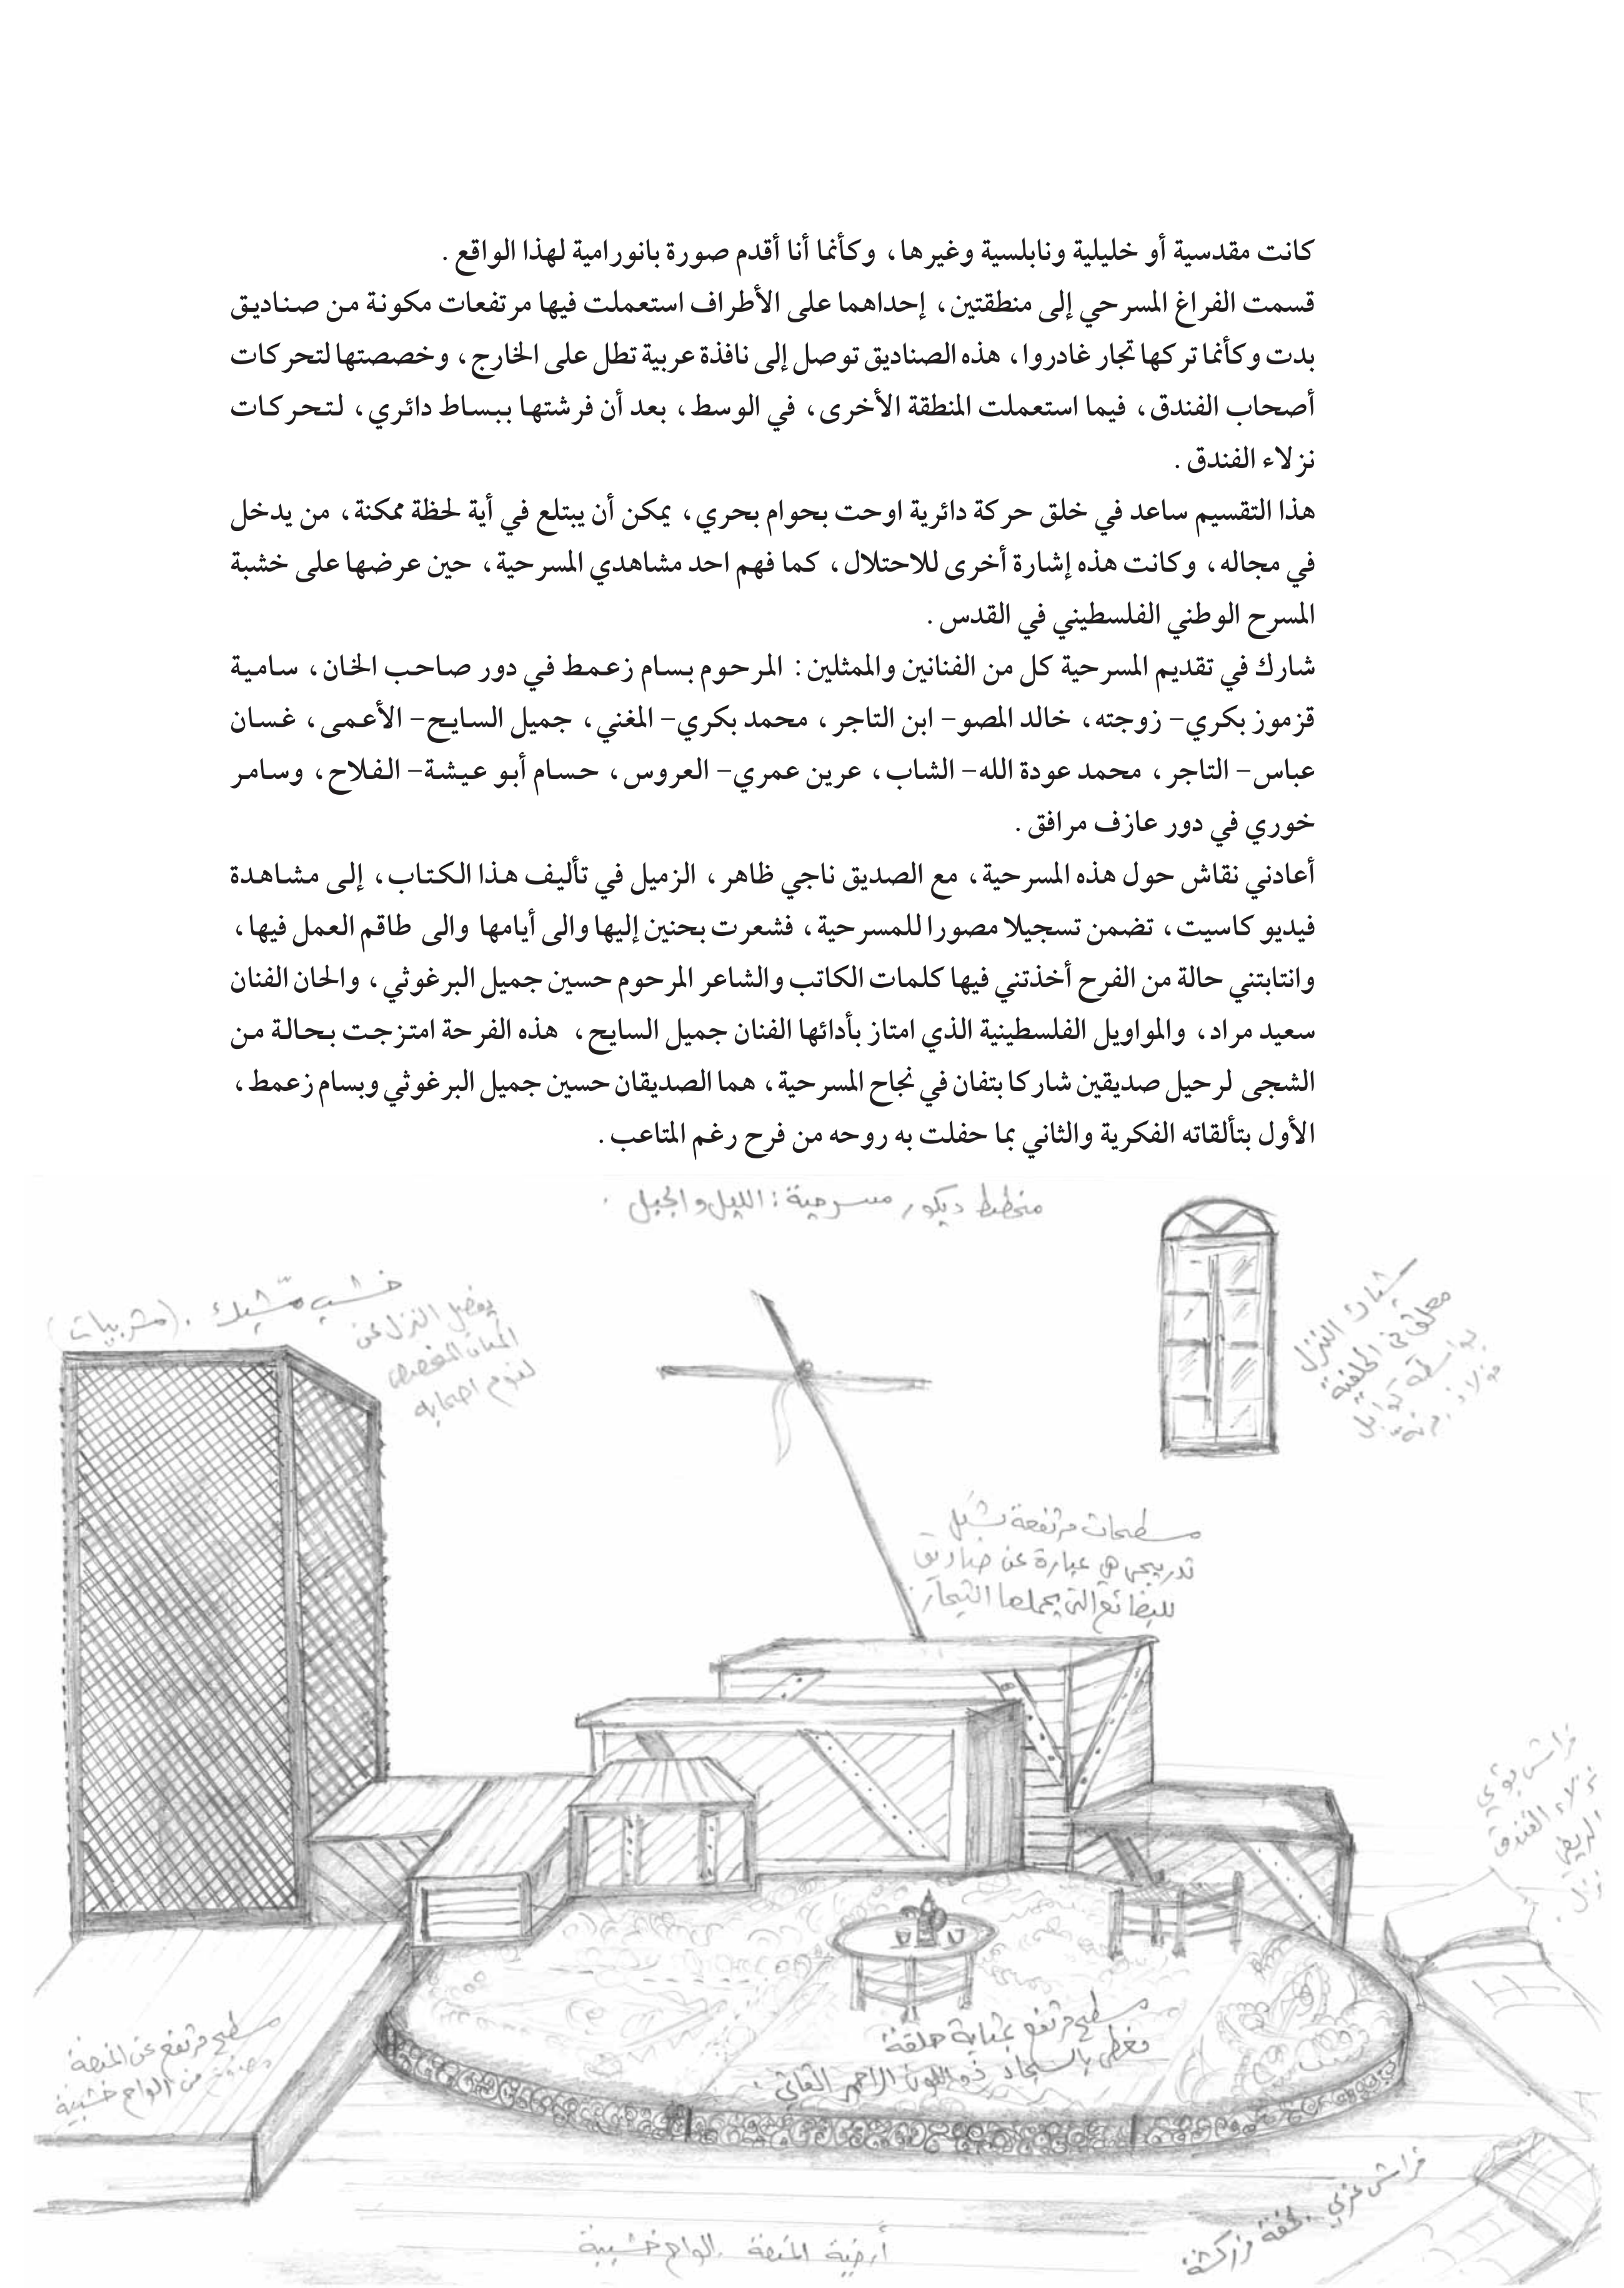 كانت مقدسية أو خليلية ونابلسية وغيرها، وكأنما أنا أقدم صورة بانورامية لهذا الواقع.
قسمت الفراغ المسرحي إلى منطقتين، إحداهما على الأطراف استعملت فيها مرتفعات مكونة من صناديق
بدت وكأنما تركها تجار غادروا، هذه الصناديق توصل إلى نافذة عربية تطل على الخارج، وخصصتها لتحركات
أصحاب الفندق، فيما استعملت المنطقة الأخرى، في الوسط، بعد أن فرشتها ببساط دائري، لتحركات
نزلاء الفندق.
هذا التقسيم ساعد في خلق حركة دائرية اوحت بحوام بحري، يمكن أن يبتلع في أية لحظة ممكنة، من يدخل
في مجاله، وكانت هذه إشارة أخرى للاحتلال، كما فهم احد مشاهدي المسرحية، حين عرضها على خشبة
المسرح الوطني الفلسطيني في القدس.
شارك في تقديم المسرحية كل من الفنانين والممثلين: المرحوم بسام زعمط في دور صاحب الخان، سامية
قزموز بكري- زوجته، خالد المصو- ابن التاجر، محمد بكري- المغني، جميل السايح- الأعمى، غسان
عباس- التاجر، محمد عودة الله- الشاب، عرين عمري- العروس، حسام أبو عيشة- الفلاح، وسامر
خوري في دور عازف مرافق.
أعادني نقاش حول هذه المسرحية، مع الصديق ناجي ظاهر، الزميل في تأليف هذا الكتاب، إلى مشاهدة
فيديو كاسيت، تضمن تسجيلا مصورا للمسرحية، فشعرت بحنين إليها والى أيامها والى طاقم العمل فيها،
وانتابتني حالة من الفرح أخذتني فيها كلمات الكاتب والشاعر المرحوم حسين جميل البرغوثي، والحان الفنان
سعيد مراد، والمواويل الفلسطينية الذي امتاز بأدائها الفنان جميل السايح، هذه الفرحة امتزجت بحالة من
الشجى لرحيل صديقين شاركا بتفان في نجاح المسرحية، هما الصديقان حسين جميل البرغوثي وبسام زعمط،
الأول بتألقاته الفكرية والثاني بما حفلت به روحه من فرح رغم المتاعب.
مخطط ديكور مسرحية: الليل والجبل.
خشب مشبك. (مشربيات)
يفصل النزل عن
المكان المخصص
لنوم اصحابه
شباك النزل
معلق في الخلفية
مسطحات مرتفعة بشكل
تدريجي هي عبارة عن صناديق
للبضائع التي يحملها التجار
فراش يؤوي
نزلاء الفندق
مسطح مرتفع بمثابة حلقة
مغطى بالسجاد ذو اللون الاحمر القاني.
مسطح مرتفع عن المنصة
من الواح خشبية
فراش عربي. لحفة مزركشة
أرضية المنصة. الواح خشبية